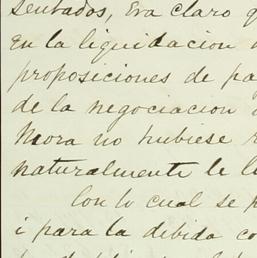 sentados, Era claro q
En la liquidacion
proposiciones de pa
de la negociacion
Mora no hubiese r
naturalmente le li
Con lo cual se p
i para la debida co